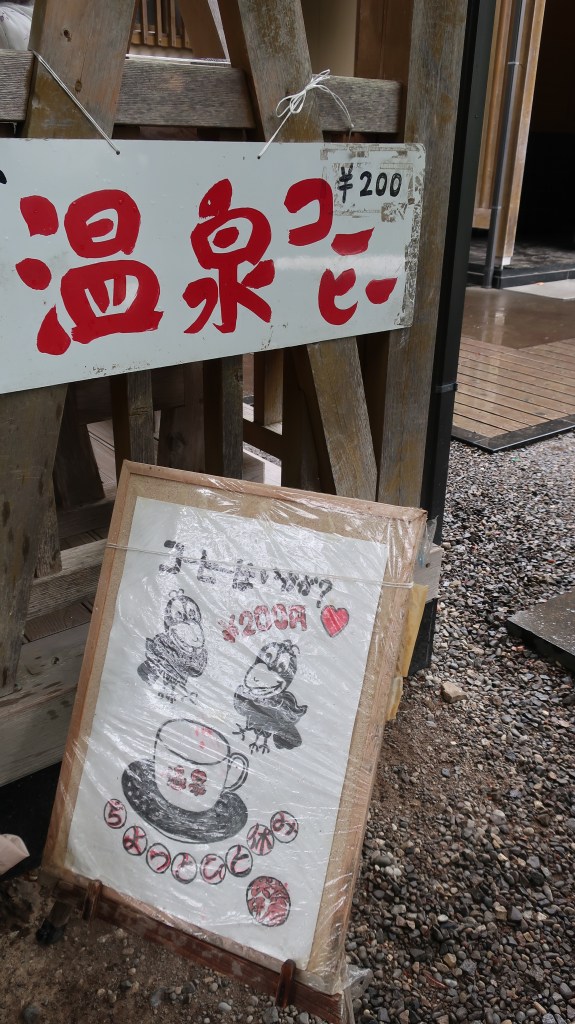 ¥200
温泉コーヒー
コーヒーはいかが?
¥200円
温泉
ちょっとひと休み